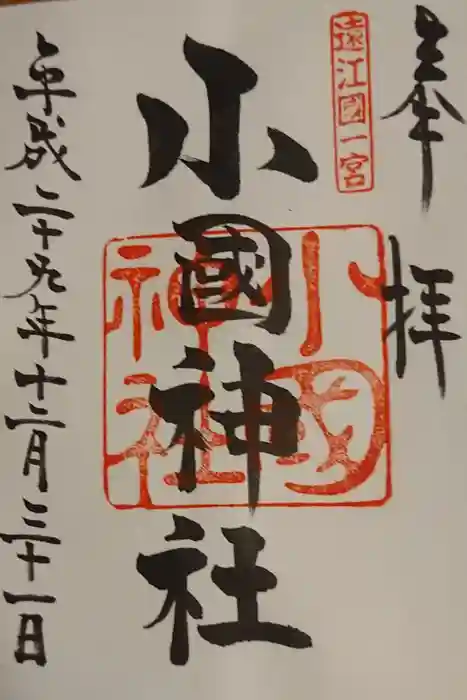 奉拝
遠江國一宮
小國神社
小國神社
平成二十九年十二月三十一日